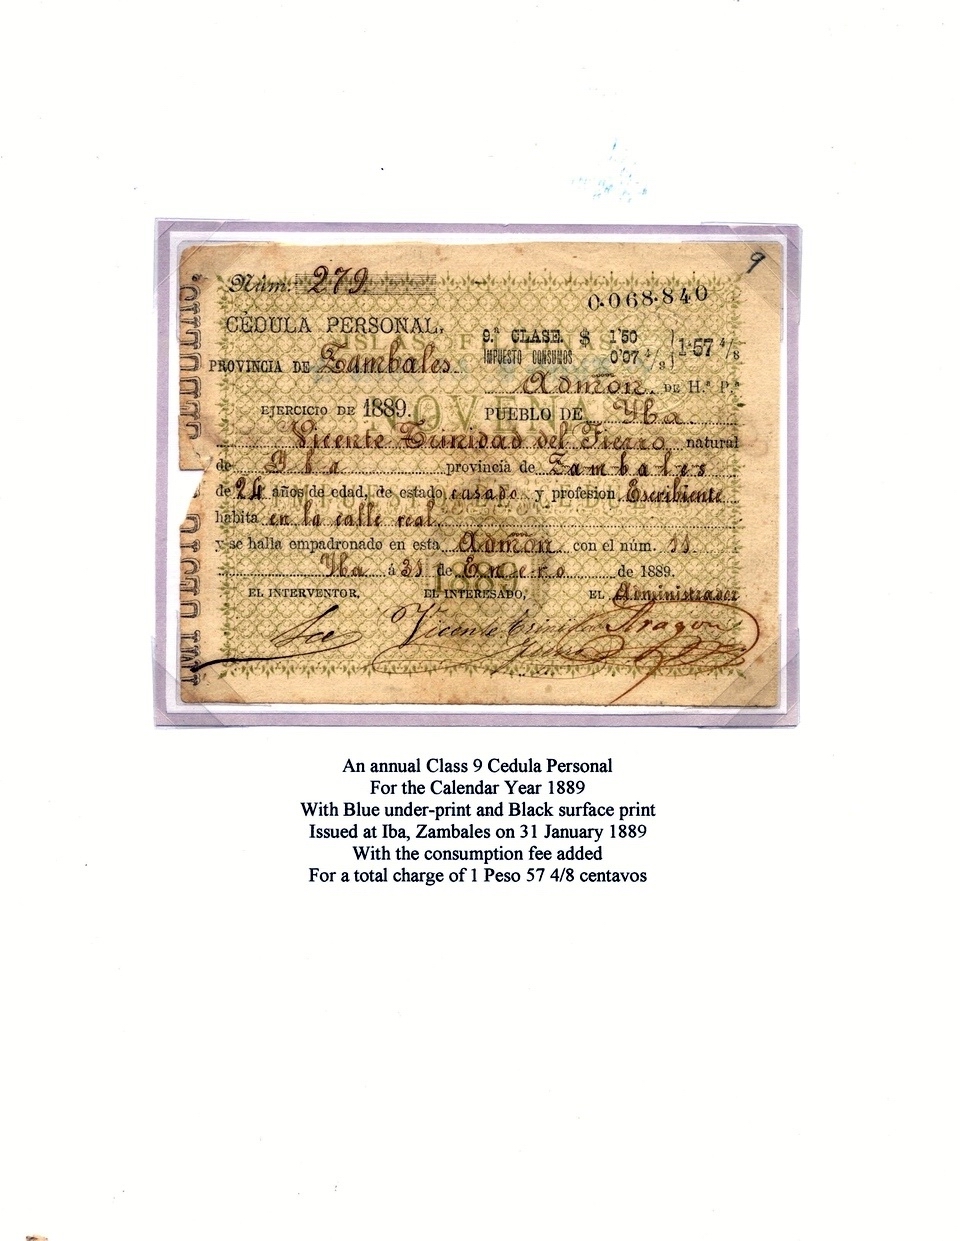 9
Núm. 279
0.068.840
CÉDULA PERSONAL,
ISLAS FILIPINAS
9.ª CLASE $ 1'50
IMPUESTO CONSUMOS 0'07 4/8
1'57 4/8
PROVINCIA DE Zambales.
Admon. DE H.ª P.ª
NOVENA
EJERCICIO DE 1889. PUEBLO DE Yba.
Vicente Trinidad del Fierro natural
de Yba provincia de Zambales
de 24 años de edad, de estado casado y profesion Escribiente
habita en la calle real
y se halla empadronado en esta Admon con el núm. 11
Yba á 31 de Enero de 1889.
1889
EL INTERVENTOR, EL INTERESADO, EL Administrador
Vicente Trinidad Aragon
An annual Class 9 Cedula Personal
For the Calendar Year 1889
With Blue under-print and Black surface print
Issued at Iba, Zambales on 31 January 1889
With the consumption fee added
For a total charge of 1 Peso 57 4/8 centavos